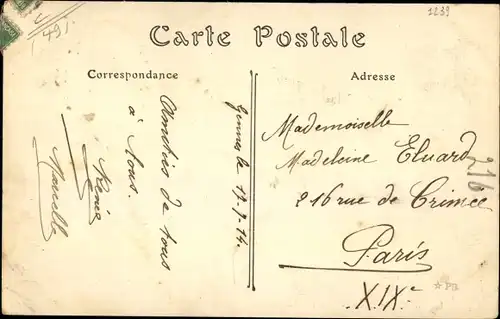 1239
1491
Carte Postale
Correspondance
Adresse
Amitiés de tous
à tous.
Rénée
Marcelle
Gennes le 17-7-14.
Mademoiselle
Madeleine Eluard
216 rue de Crimée
Paris
XIXe
216